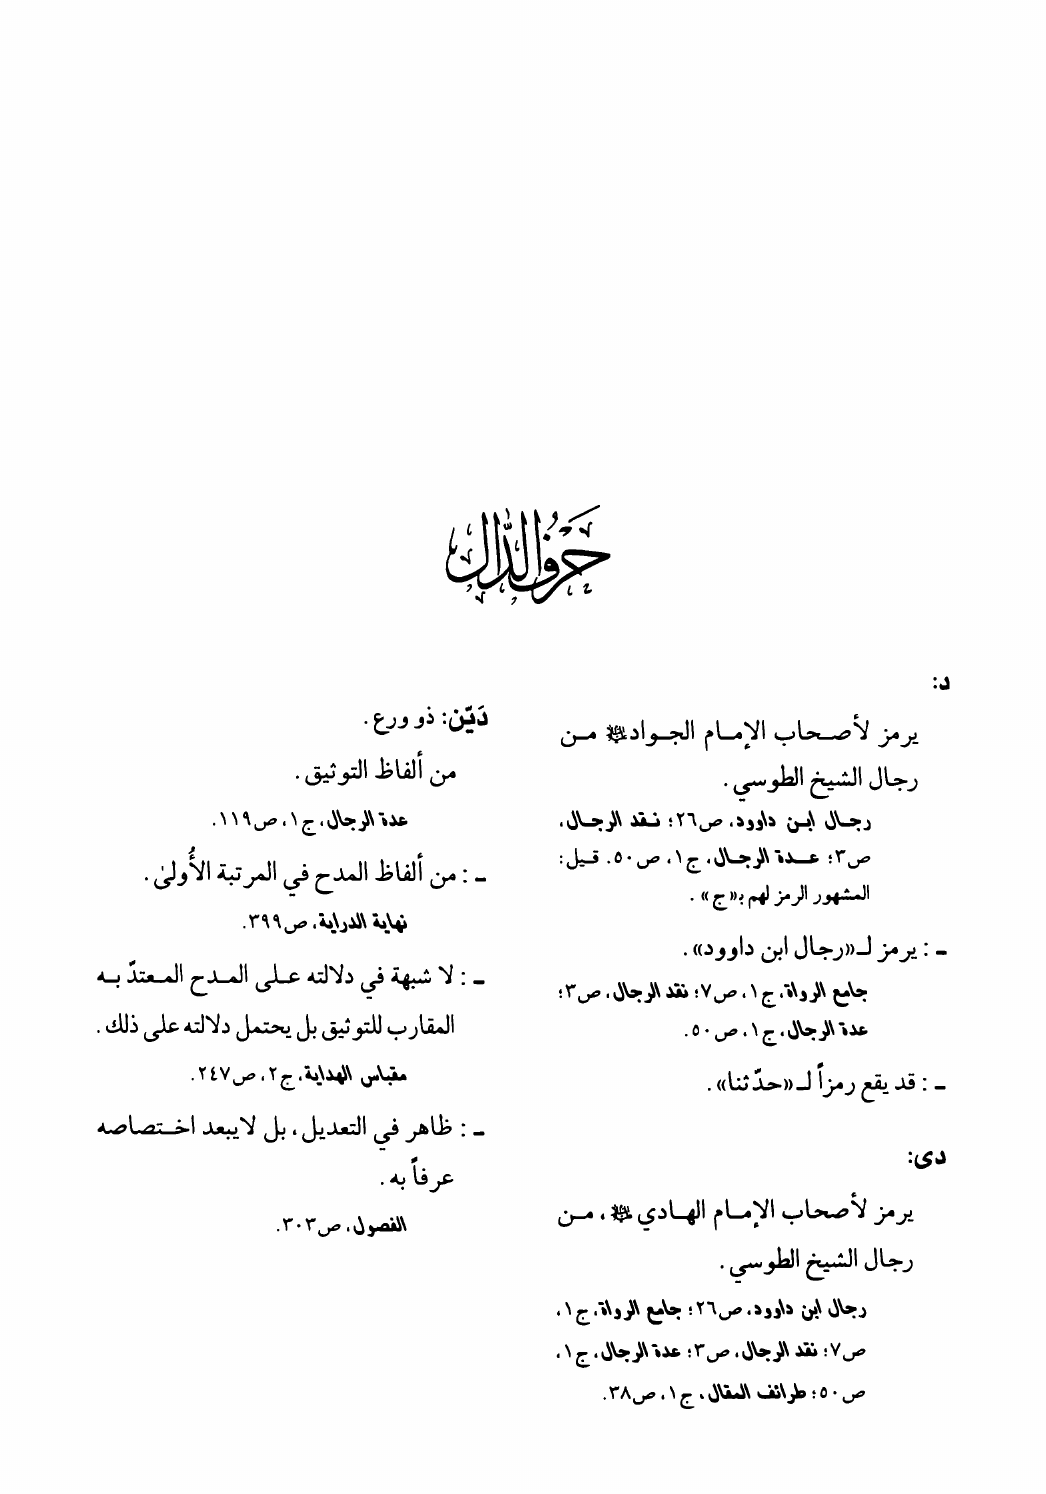 حَرفُ الدَّال
د:
يرمز لأصحاب الإمام الجواد ﵇ من
رجال الشيخ الطوسي.
رجال ابن داوود، ص٢٦؛ نقد الرجال،
ص٣؛ عدة الرجال، ج١، ص٥٠. قيل:
المشهور الرمز لهم بـ«ج».
ـ: يرمز لـ«رجال ابن داوود».
جامع الرواة، ج١، ص٧؛ نقد الرجال، ص٣؛
عدة الرجال، ج١، ص٥٠.
ـ: قد يقع رمزاً لـ«حدّثنا».
دى:
يرمز لأصحاب الإمام الهادي ﵇، من
رجال الشيخ الطوسي.
رجال ابن داوود، ص٢٦؛ جامع الرواة، ج١،
ص٧؛ نقد الرجال، ص٣؛ عدة الرجال، ج١،
ص٥٠؛ طرائف المقال، ج١، ص٣٨.
دَيّن: ذو ورع.
من ألفاظ التوثيق.
عدة الرجال، ج١، ص١١٩.
ـ: من ألفاظ المدح في المرتبة الأُولىٰ.
نهاية الدراية، ص٣٩٩.
ـ: لا شبهة في دلالته على المدح المعتدّ به
المقارب للتوثيق بل يحتمل دلالته على ذلك.
مقباس الهداية، ج٢، ص٢٤٧.
ـ: ظاهر في التعديل، بل لايبعد اختصاصه
عرفاً به.
الفصول، ص٣٠٣.